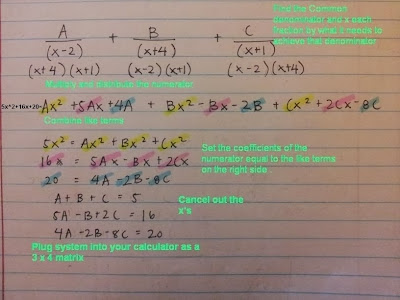 A/(x-2) + B/(x+4) + C/(x+1)
Find the Common
denominator and x each
fraction by what it needs to
achieve that denominator
(x+4)(x+1) (x-2)(x+1) (x-2)(x+4)
Multiply and distribute the numerator
5x^2+16x+20= Ax² +5Ax +4A + Bx² -Bx -2B + Cx² +2Cx -8C
Combine like terms
5x² = Ax² + Bx² + Cx²
16x = 5Ax - Bx + 2Cx
20 = 4A -2B -8C
Set the coefficients of the
numerator equal to the like terms
on the right side .
A + B + C = 5
5A -B +2C = 16
4A -2B -8C = 20
Cancel out the
x's
Plug system into your calculator as a
3 x 4 matrix